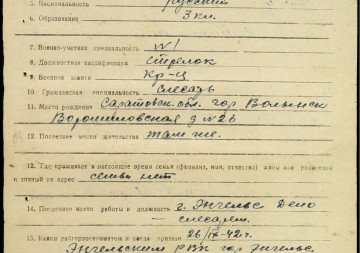 5. Национальность русский
6. Образование 3 кл.
7. Военно-учетная специальность №1
8. Должностная квалификация Стрелок
9. Военное звание Кр-ц
10. Гражданская специальность Слесарь
11. Место рождения Саратовск. обл. гор Вольск
Ворошиловская д №26
12. Последнее место жительства там же.
12. Где проживает в настоящее время семья (фамилия, имя, отчество) жены или родителей
и точный их адрес семьи нет
14. Последнее место работы и должность г. Энгельс Депо
— слесарем.
15. Каким райгорвоенкоматом и когда призван 26/IX-42г.
Энгельским РВК гор Энгельс